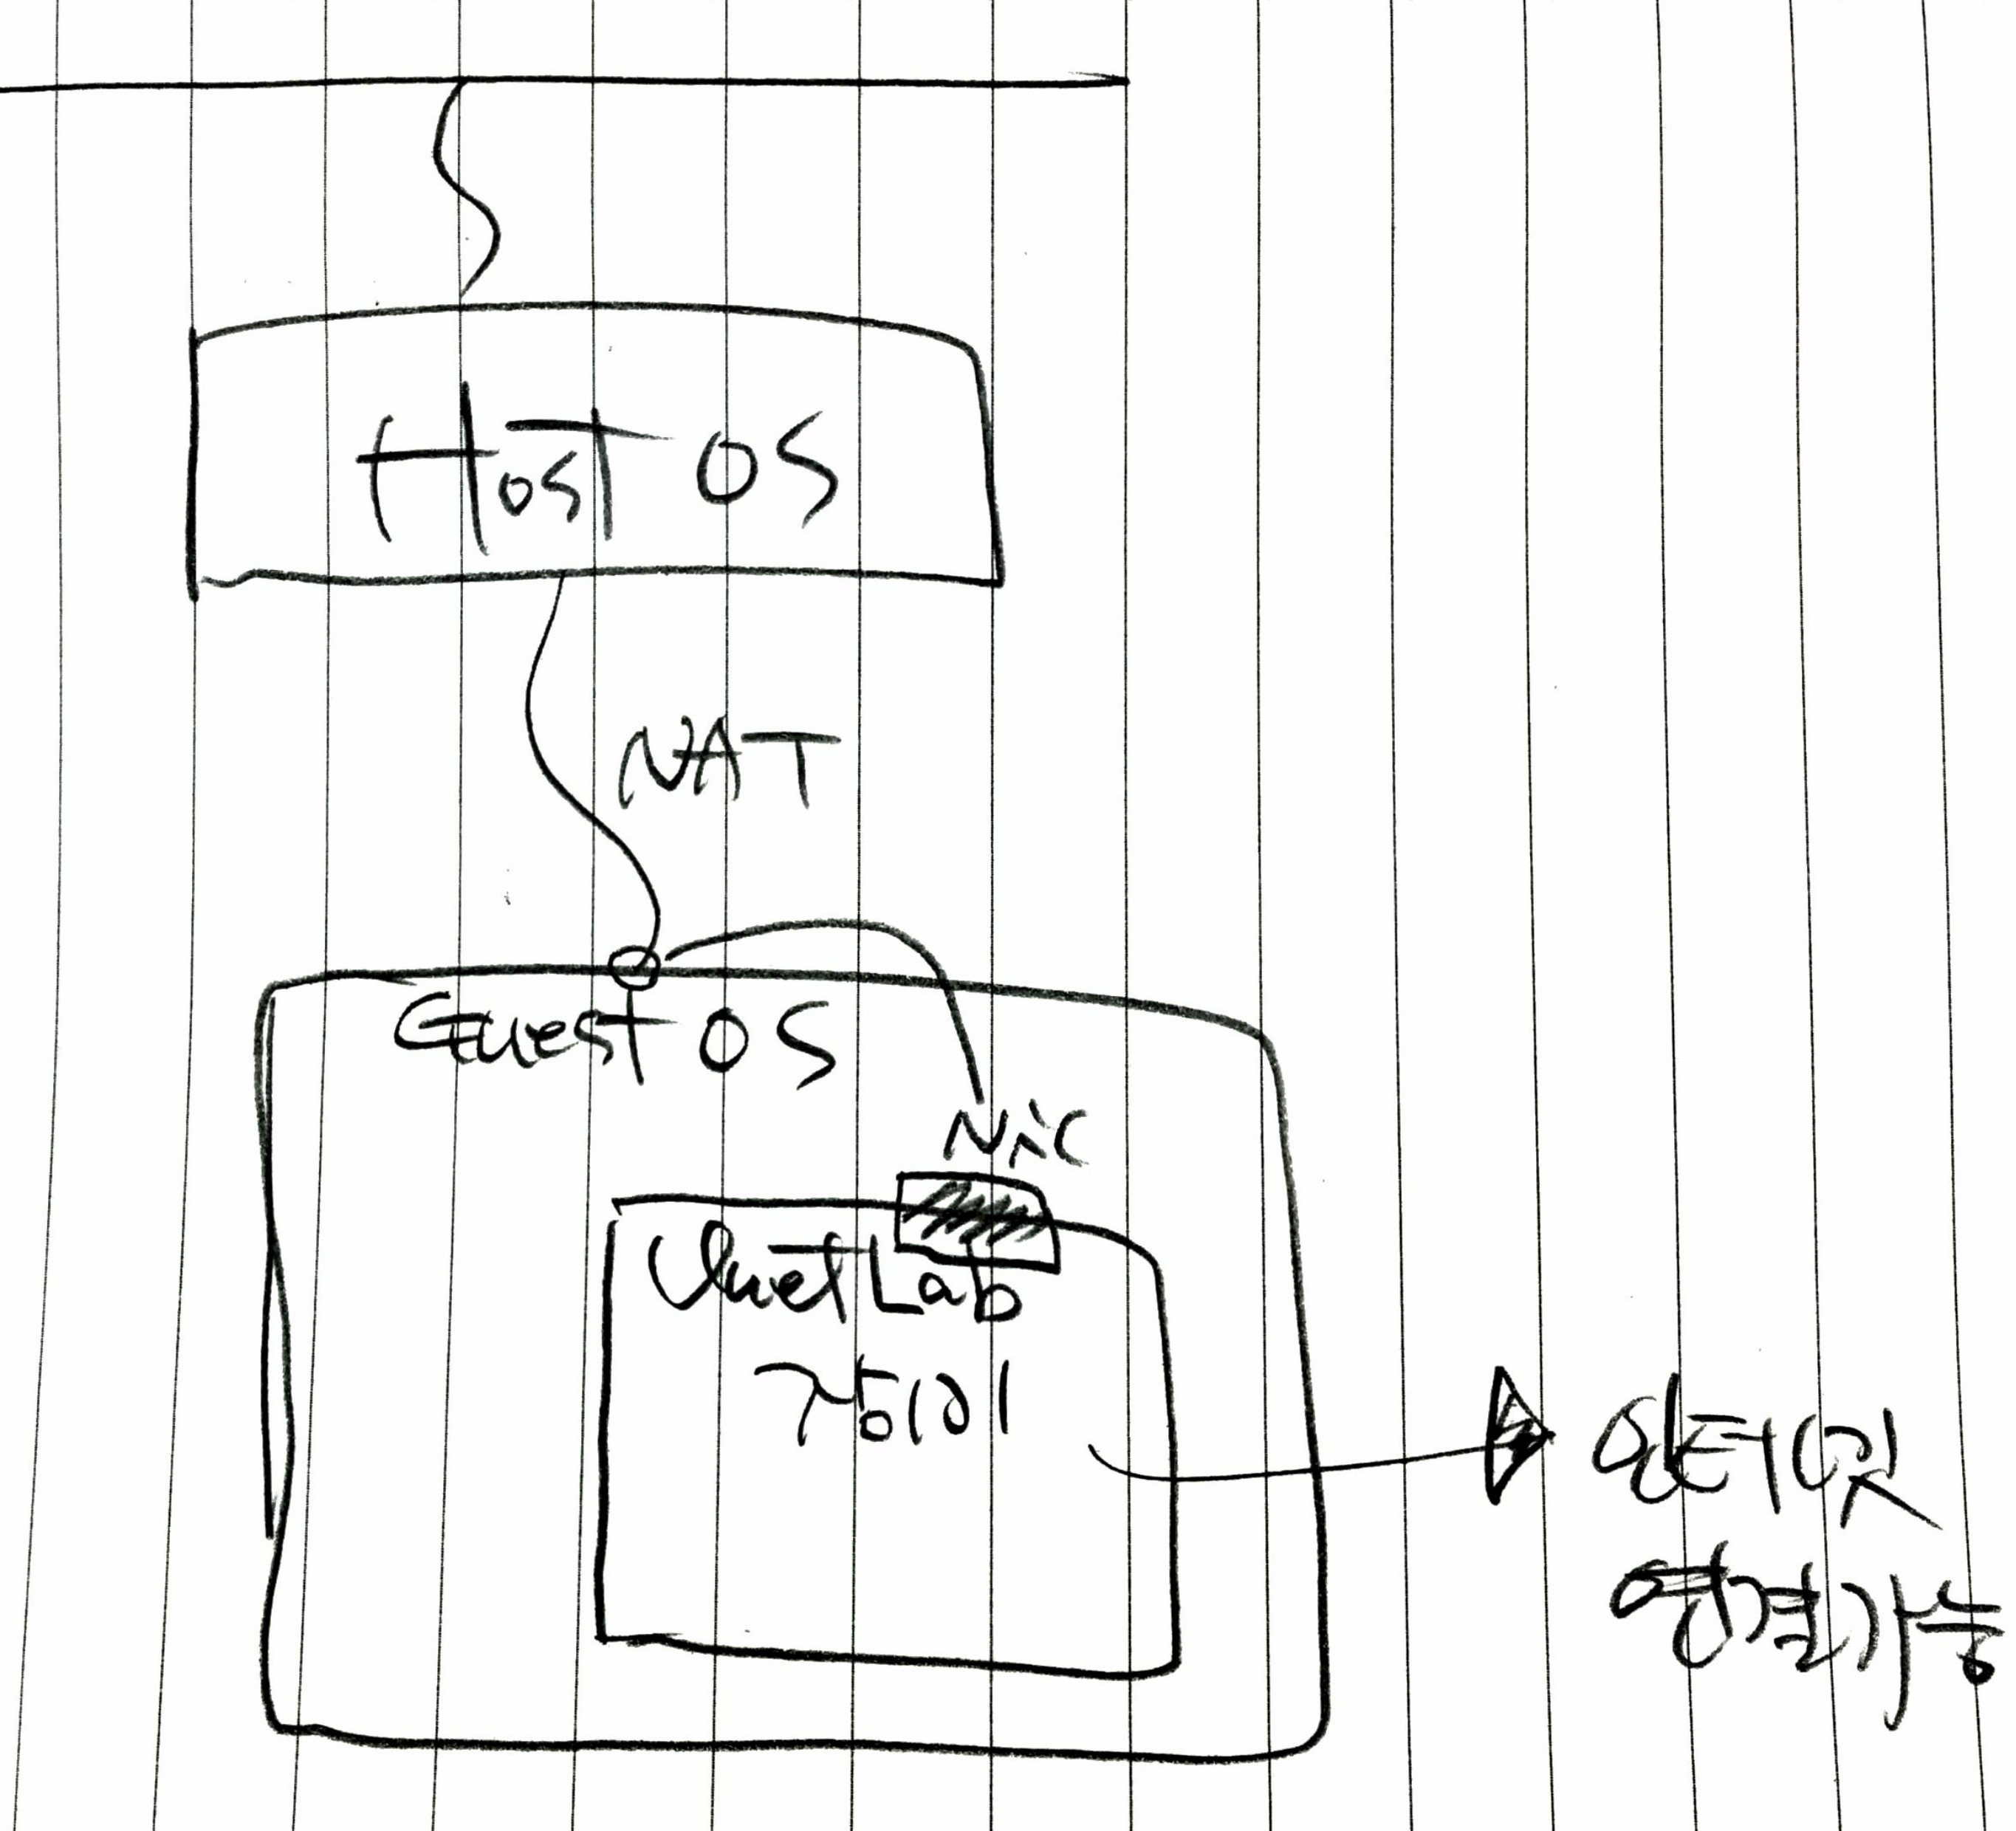 Host OS
NAT
Guest OS
NIC
UnetLab
장비
인터넷
연결가능